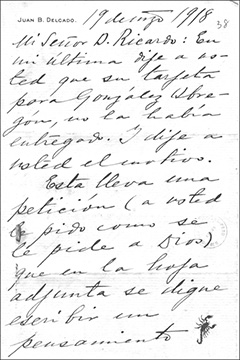 JUAN B. DELGADO.
19 de mayo 1918
38
Mi Señor D. Ricardo: En
mi última dije a us-
ted que su tarjeta
para González Obre-
gón, no la había
entregado. I dije a
usted el motivo.
Esta lleva una
petición (a usted
le pido como se
le pide a Dios)
que en la hoja
adjunta se digne
escribir un
pensamiento